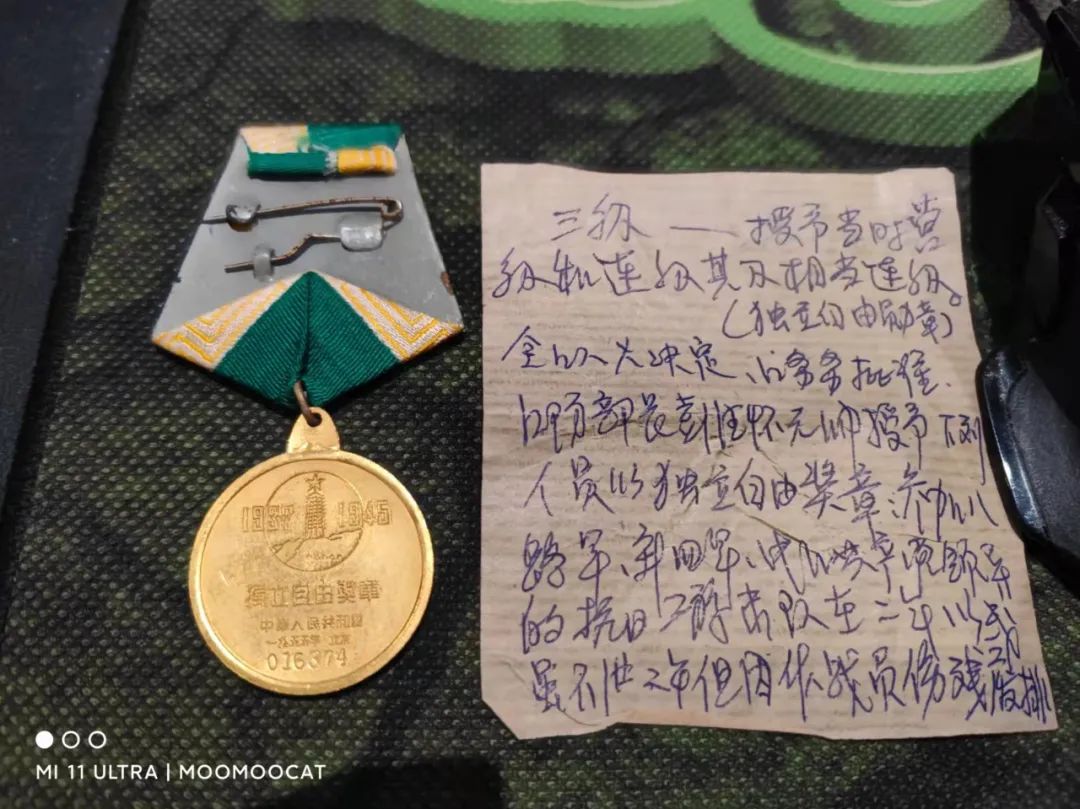 1937 1945
独立自由奖章
中华人民共和国
一九五五年 北京
016374
三级 — 授予当时营
级和连级其及相当连级。
(独立自由勋章)
全人大决定、常务批准、
防部长彭德怀元帅授予下列
人员以独立自由奖章:参加八
路军、新四军、中共产党领导
的抗日工游击队在二年以或
虽不但因作战员伤残废排
MI 11 ULTRA | MOOMOOCAT